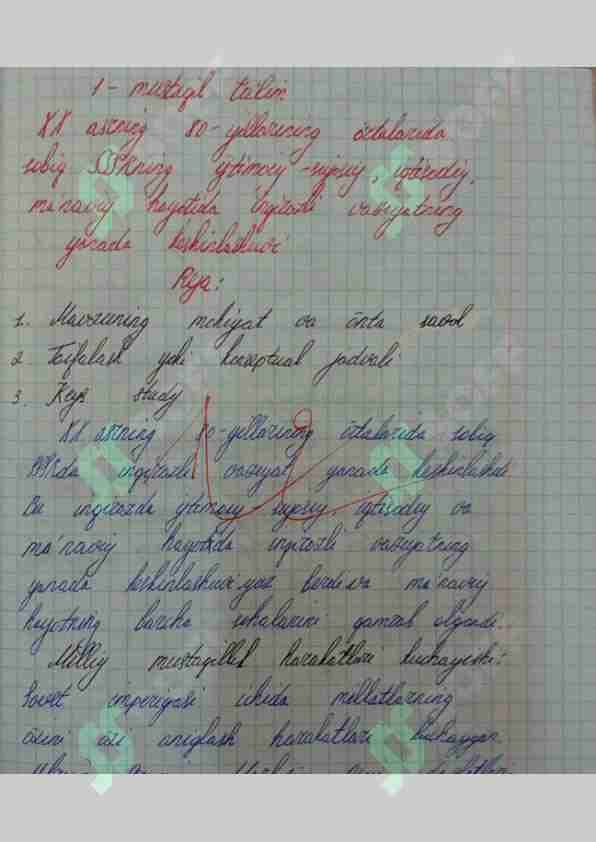 1- mustaqil ta'lim
XX asrning 80-yillarining o'rtalarida
sobiq SSSRning ijtimoiy-siyosiy, iqtisodiy,
ma'naviy hayotida inqirozli vaziyatning
yanada keskinlashuvi
Reja:
1. Mavzuning mohiyat va o'nta savol
2 Toifalash yoki konseptual jadvali
3. Keys study
XX asrning 80-yillarining o'rtalarida sobiq
SSSRda inqirozli vaziyat yanada keskinlashdi.
Bu inqirozda ijtimoiy-siyosiy, iqtisodiy va
ma'naviy hayotida inqirozli vaziyatning
yanada keskinlashuvi yuz berdi va ma'naviy
hayotning barcha sohalarini qamrab olgandi..
Milliy mustaqillik harakatlari kuchayishi:
Sovet imperiyasi ichida millatlarning
o'zini o'zi aniqlash harakatlari kuchaygan.